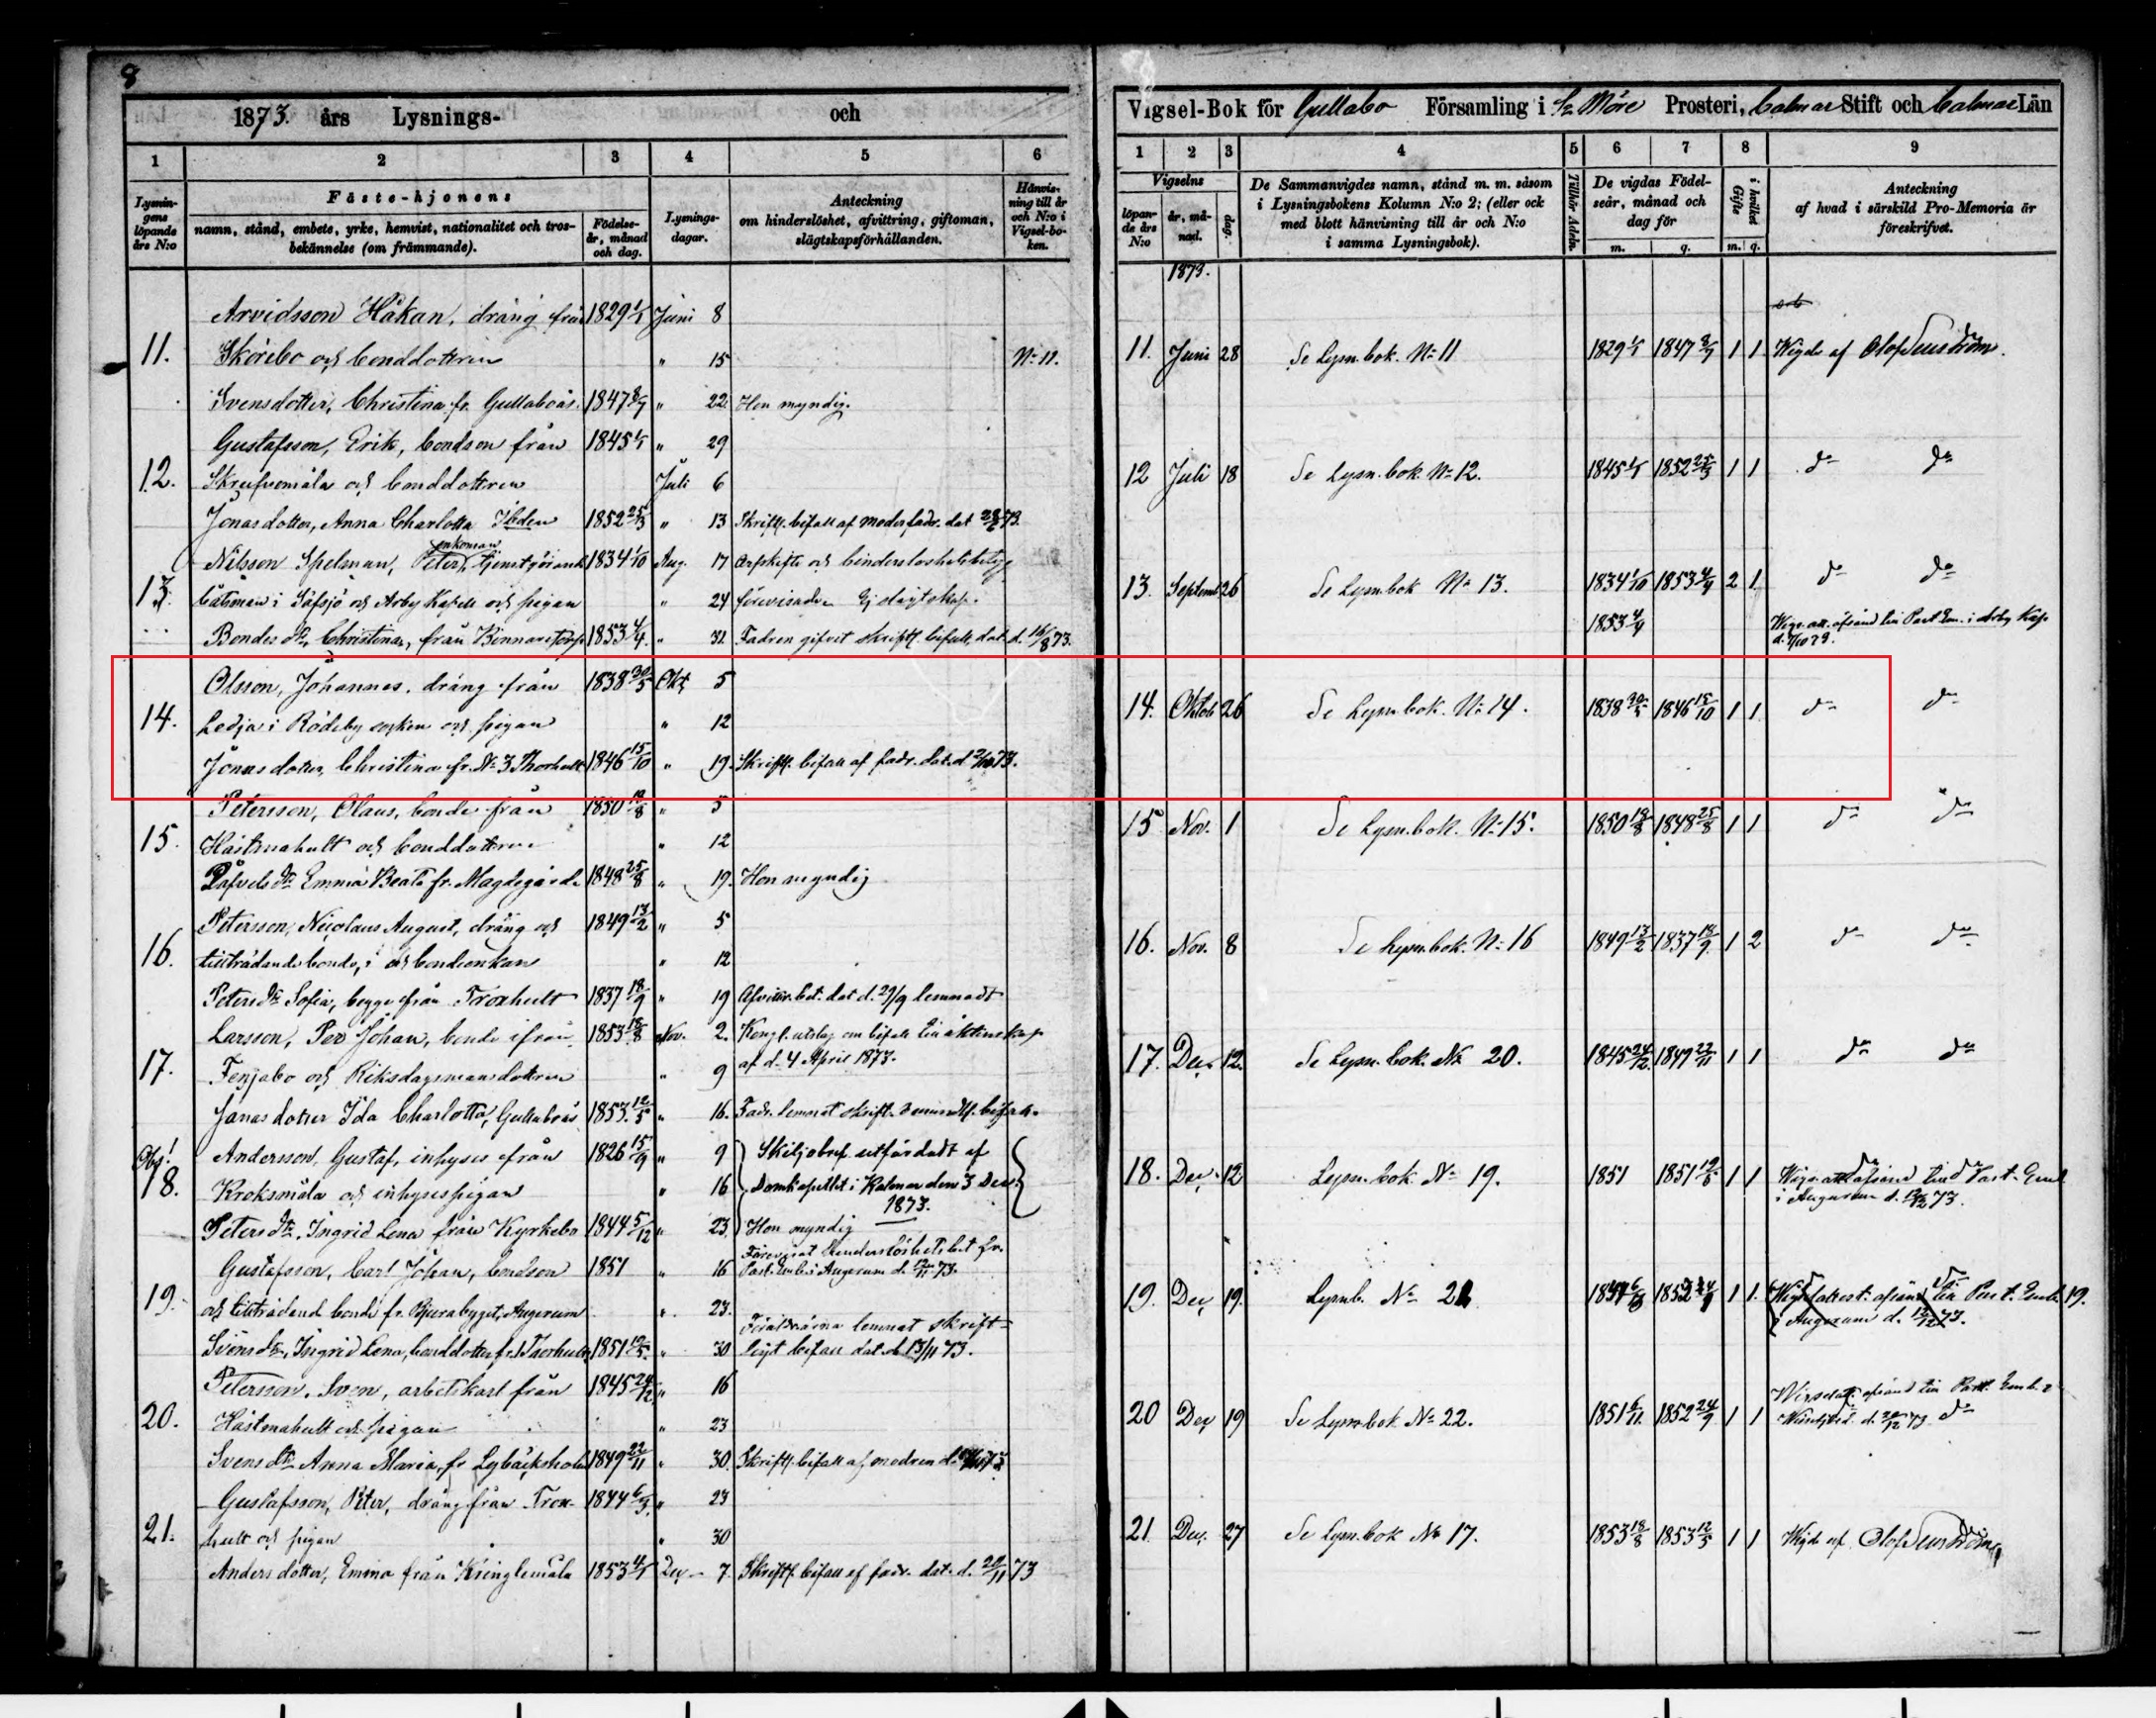 8
1873. års Lysnings- och
1 2 3 4 5 6
Lysnin-
gens
löpande
års N:o
Fäste-hjonens
namn, stånd, embete, yrke, hemvist, nationalitet och tros-
bekännelse (om främmande).
Födelse-
år, månad
och dag.
Lysnings-
dagar.
Anteckning
om hinderslöshet, afvittring, giftoman,
slägtskapsförhållanden.
Hänvis-
ning till år
och N:o i
Vigsel-bo-
ken.
Arvidsson Håkan, dräng från 1829 1/1 Juni 8
11. Skörebo och bonddottren " 15 No 11.
Svensdotter, Christina fr. Gullaboås. 1847 8/7 " 22 Hon myndig.
Gustafsson, Erik, bondson från 1845 1/1 " 29
12. Skrufvemåla och bonddottren Juli 6
Jonasdotter, Anna Charlotta Ibden 1852 25/3 " 13 Skriftl. bifall af moder fadr. dat 73.
enkeman
Nilsson Spelman, Peter, 1834 1/10 Aug. 17 Arfskifte och hinderslöshetsbetyg
13. båtsman i Säfsjö och Arby Kapell och pigan " 24 förevisades. Ej slägtskap.
Bondes dr, Christina, från 1853 4/4. " 31 Fadren gifvit skriftl. bifall, dat. d. 16/8 73.
Olsson, Johannes, dräng från 1838 30/5 Okt. 5
14. Ledja i Rödeby socken och pigan " 12
Jonasdotter, Christina fr. No 3 Thorhult 1846 15/10 " 19. Skriftl. bifall af fadr. dat. d. 73.
Petersson, Olaus, bonde från 1850 19/8 " 5
15. Hästmahult och bonddottren " 12
Påfvels dr Emma Beata fr. Magdegärde 1848 25/8 " 19. Hon myndig
Petersson, Nicolaus August, dräng och 1849 13/2 " 5
16. tillträdande bonde, i och bondenkan " 12
Peters dr Sofia, begge från Troxhult 1837 18/9 " 19 Afvittr. bet. dat d. 29/9 lemnadt
Larsson, Per Johan, bonde ifrån 1853 18/8 Nov. 2. Kongl. utslag om bifall till äktenskap
17. Fenjabo och Riksdagsmansdottren " 9 af d. 4 April 1873.
Jonasdotter Ida Charlotta, Gullaboås 1853. 12/5 " 16. Fadr. lemnat skriftl. bifall.
Obs!
Andersson, Gustaf, inhyses från 1826 15/9 " 9 Skiljobref utfärdadt af
18. Kroksmåla och inhysespigan " 16 Domkapitlet i Kalmar den 3 Dec.
1873.
Peters dr. Ingrid Lena från Kyrkebo 1844 5/12 " 23. Hon myndig
Gustafsson, Carl Johan, bondson 1851 " 16 Förevisat hinderslöshetsbet fr.
Past. Emb. i Augerum d. 12/11 73.
19. och tillträdand bonde fr. Bjurabygget, Augerum " 23. Föräldrarna lemnat skrift-
Svens dr, Ingrid Lena, bonddotter fr. Thorhult 1851 19/5. " 30 ligt bifall dat. d. 13/11 73.
Petersson, Sven, arbetskarl från 1845 24/12 " 16
20. Hästmahult och pigan " 23
Svens dr Anna Maria, fr Lejbäcksholm 1849 22/11 " 30. Skriftl. bifall af modren d.
Gustafsson, Peter, dräng från Trox- 1844 6/3. " 23
21. hult och pigan " 30
Andersdotter, Emma från Kringlemåla 1853 4/1 Dec. 7. Skriftl. bifall af fadr. dat. d. 29/11 73
Vigsel-Bok för Gullabo Församling i S. Möre Prosteri, Calmar Stift och Calmar Län
1 2 3 4 5 6 7 8 9
Vigselns
löpan-
de års
N:o
år, må-
nad.
dag.
De Sammanvigdes namn, stånd m. m. såsom
i Lysningsbokens Kolumn N:o 2; (eller ock
med blott hänvisning till år och N:o
i samma Lysningsbok).
De vigdas Födel-
seår, månad och
dag för
m. q.
i hvilket Gifte
m. q.
Anteckning
af hvad i särskild Pro-Memoria är
föreskrifvet.
1873.
11. Juni 28 Se Lysn. bok. No 11 1829 1/1 1847 8/7 1 1 Wigde af Olof
12 Juli 18 Se Lysn. bok. No 12. 1845 1/1 1852 25/3 1 1 do do
13. Septemb 26 Se Lysn. bok No 13. 1834 1/10 1853 4/4 2 1 do do
1853 4/4 Wigs. att. afsänd till Past. Em. i Arby Kap.
14. Oktob 26 Se Lysn. bok. No 14. 1838 30/5 1846 15/10 1 1 do do
15 Nov. 1 Se Lysn. bok. No 15. 1850 19/8 1848 25/8 1 1 do do
16. Nov. 8 Se Lysn. bok. No 16 1849 13/2 1837 18/9. 1 2 do do
17. Dec. 12. Se Lysn. bok. No 20. 1845 24/12. 1849 22/11 1 1 do do
18. Dec. 12 Lysn. bok. No 19. 1851 1851 19/5 1 1 Wigs. att. afsänd till Past. Emb.
i Augerum d. 73.
19. Dec. 19. Lysnb. No 21 1852 1 1. Wigselattest. afsänd till Past. Emb. 19.
i Augerum d. 73.
20 Dec. 19 Se Lysn. bok No 22. 1851 6/11. 1852 24/9 1 1 afsänd till Past. Emb. i
d. 73. do
21. Dec. 27 Se Lysn. bok No 17. 1853 18/8 1853 12/5 1 1 Wigde af Olof